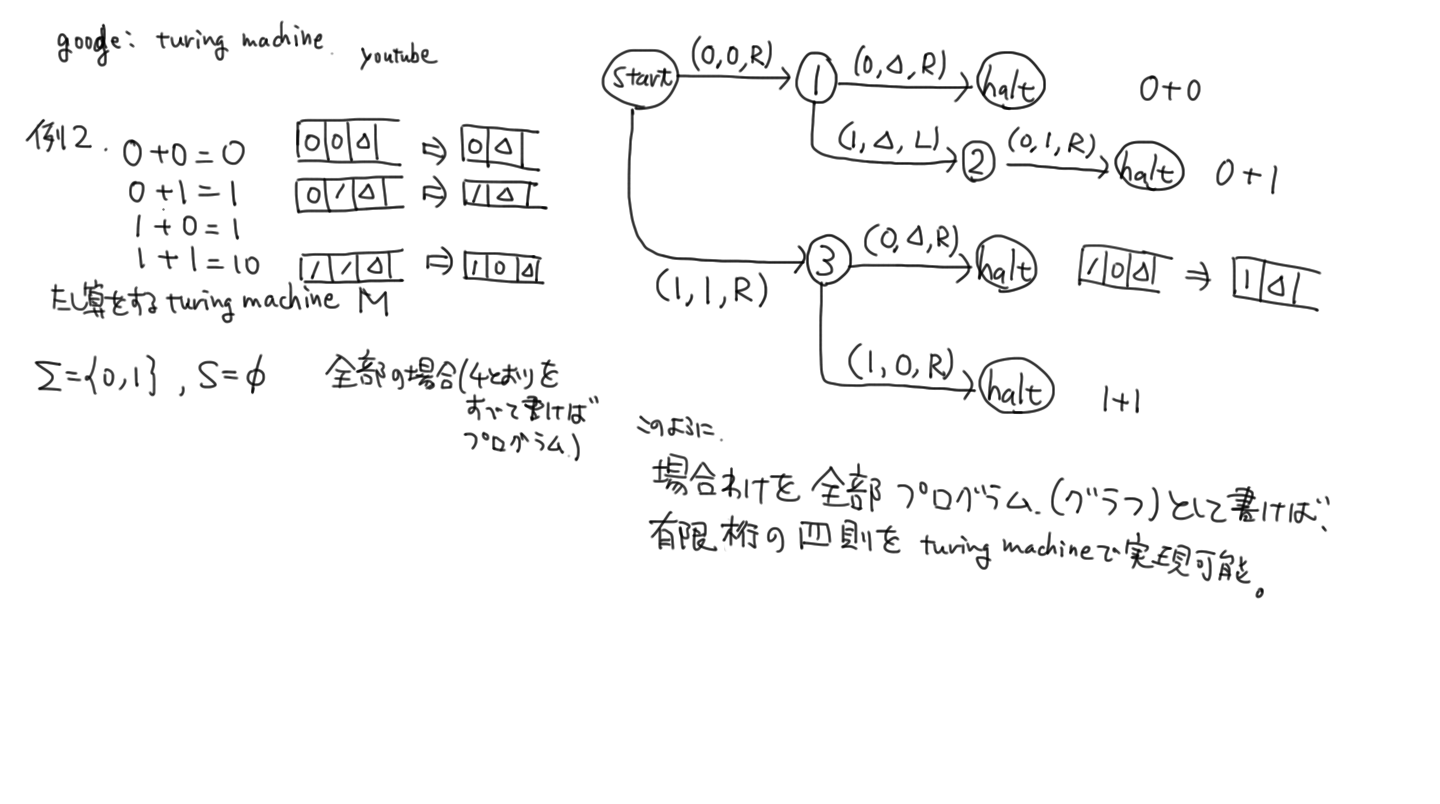 google: turing machine. youtube
例2.
0+0=0 |0|0|Δ| ⇨ |0|Δ|
0+1=1 |0|1|Δ| ⇨ |1|Δ|
1+0=1
1+1=10 |1|1|Δ| ⇨ |1|0|Δ|
たし算をする turing machine M
Σ={0,1}, S=φ
全部の場合(4とおりを
すべて書けば
プログラム)
start (0,0,R) 1 (0,Δ,R) halt 0+0
(1,Δ,L) 2 (0,1,R) halt 0+1
(1,1,R) 3 (0,Δ,R) halt |1|0|Δ| ⇒ |1|Δ|
(1,0,R) halt 1+1
このように.
場合わけを全部プログラム.(グラフ)として書けば、
有限桁の四則を turing machineで実現可能。